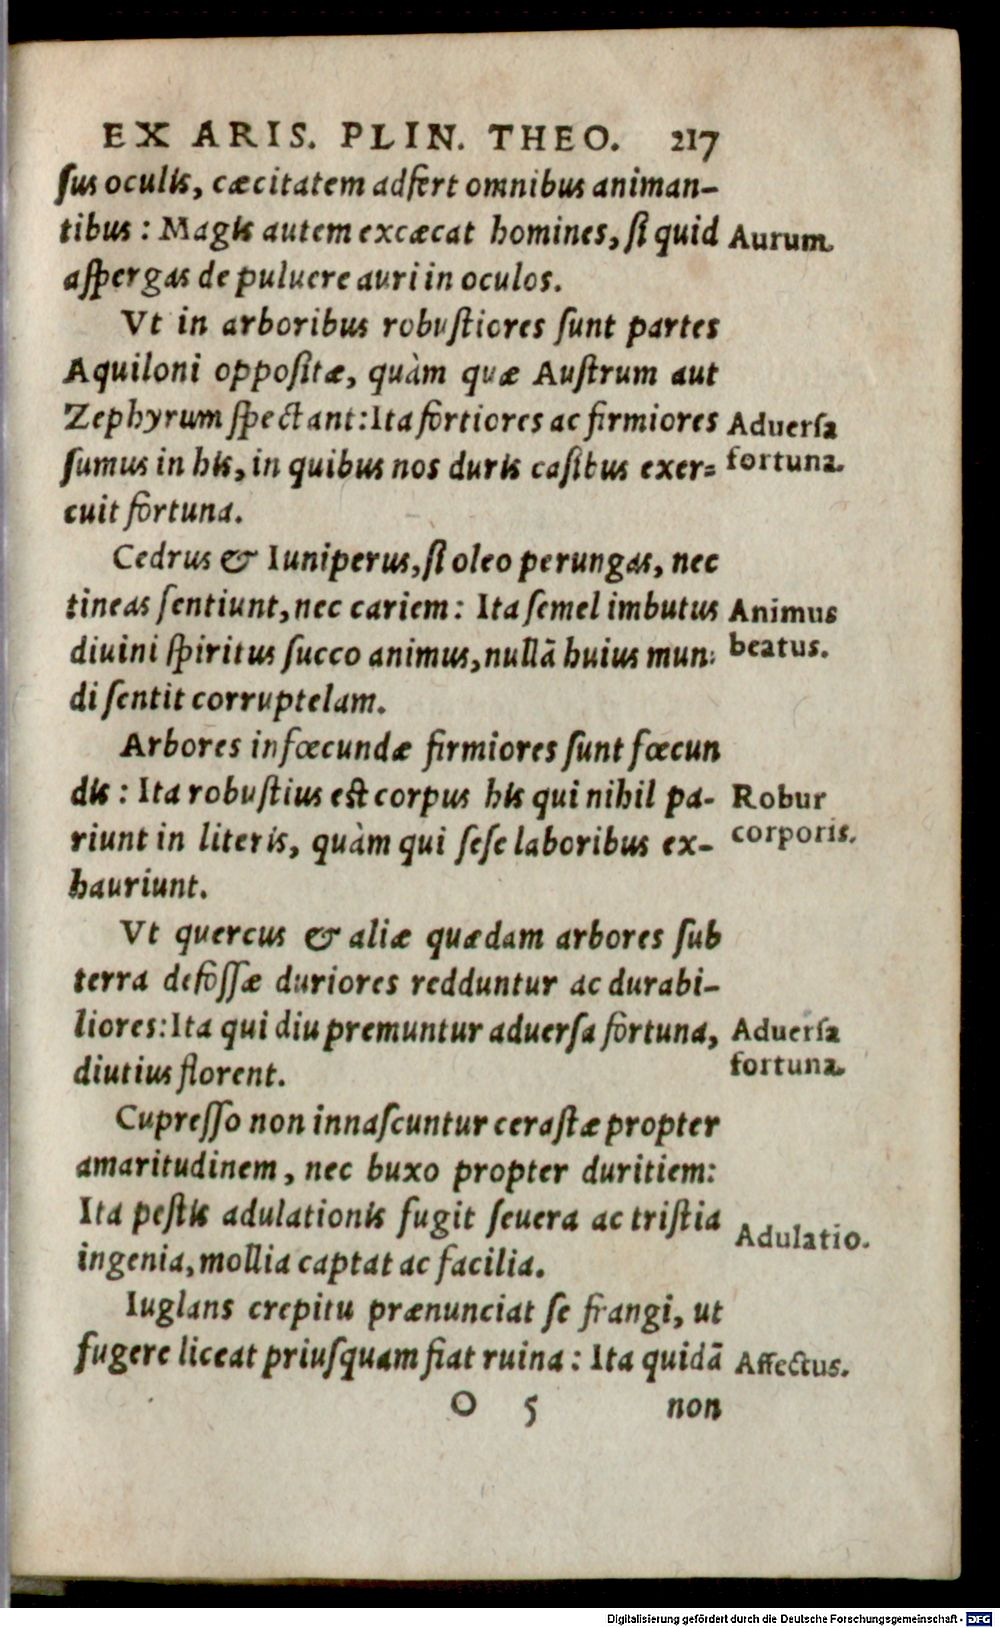 EX ARIS. PLIN. THEO. 217
ſus oculis, cæcitatem adfert omnibus animan-
tibus : Magis autem excæcat homines, ſi quid
Aurum.
aſpergas de puluere auri in oculos.
Vt in arboribus robuſtiores ſunt partes
Aquiloni oppoſitæ, quàm quæ Auſtrum aut
Zephyrum ſpectant: Ita fortiores ac firmiores
Aduerſa
ſumus in his, in quibus nos duris caſibus exer-
fortuna.
cuit fortuna.
Cedrus & Iuniperus, ſi oleo perungas, nec
tineas ſentiunt, nec cariem : Ita ſemel imbutus
Animus
diuini ſpiritus ſucco animus, nullā huius mun-
beatus.
di ſentit corruptelam.
Arbores infœcundæ firmiores ſunt fœcun
dis : Ita robuſtius eſt corpus his qui nihil pa-
Robur
riunt in literis, quàm qui ſeſe laboribus ex-
corporis.
hauriunt.
Vt quercus & aliæ quædam arbores ſub
terra defoſſæ duriores redduntur ac durabi-
liores: Ita qui diu premuntur aduerſa fortuna,
Aduerſa
fortuna.
diutius florent.
Cupreſſo non innaſcuntur ceraſtæ propter
amaritudinem, nec buxo propter duritiem:
Ita peſtis adulationis fugit ſeuera ac triſtia
Adulatio.
ingenia, mollia captat ac facilia.
Iuglans crepitu prænunciat ſe frangi, ut
fugere liceat priuſquam fiat ruina : Ita quidā
Affectus.
O 5 non
Digitalisierung gefördert durch die Deutsche Forschungsgemeinschaft - DFG